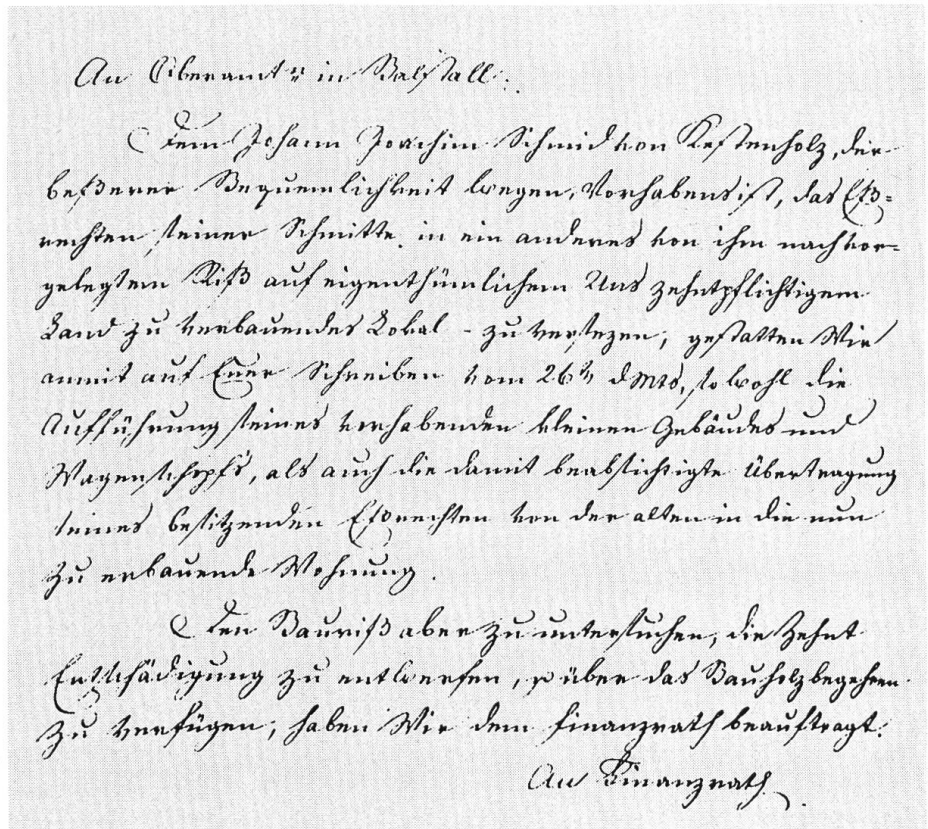 An Oberamtn in Balstall.
Dem Johann Joachim Schmid von Kestenholz, der
beßerer Bequemlichkeit wegen, Vorhabens ist, das Eß=
rechten seiner Schmitte in ein anderes von ihm nach vor=
gelegtem Riß auf eigenthümlichem Uns zehntpflichtigem
Land zu verbauendes Lokal - zu versezen, gestatten Wir
anmit auf Euer Schreiben vom 26tn dMts, sowohl die
Aufführung seines vorhabenden kleinen Gebäudes und
Wagenschopfs, als auch die damit beabsichtigte Übertragung
seines besitzenden Eßrechten von der alten in die nun
zu erbauende Wohnung.
Den Bauriß aber zu untersuchen, die Zehnt
Entschädigung zu entwerfen, so über das Bauholzbegehren
zu verfügen, haben Wir dem Finanzrath beauftragt.
An Finanzrath.